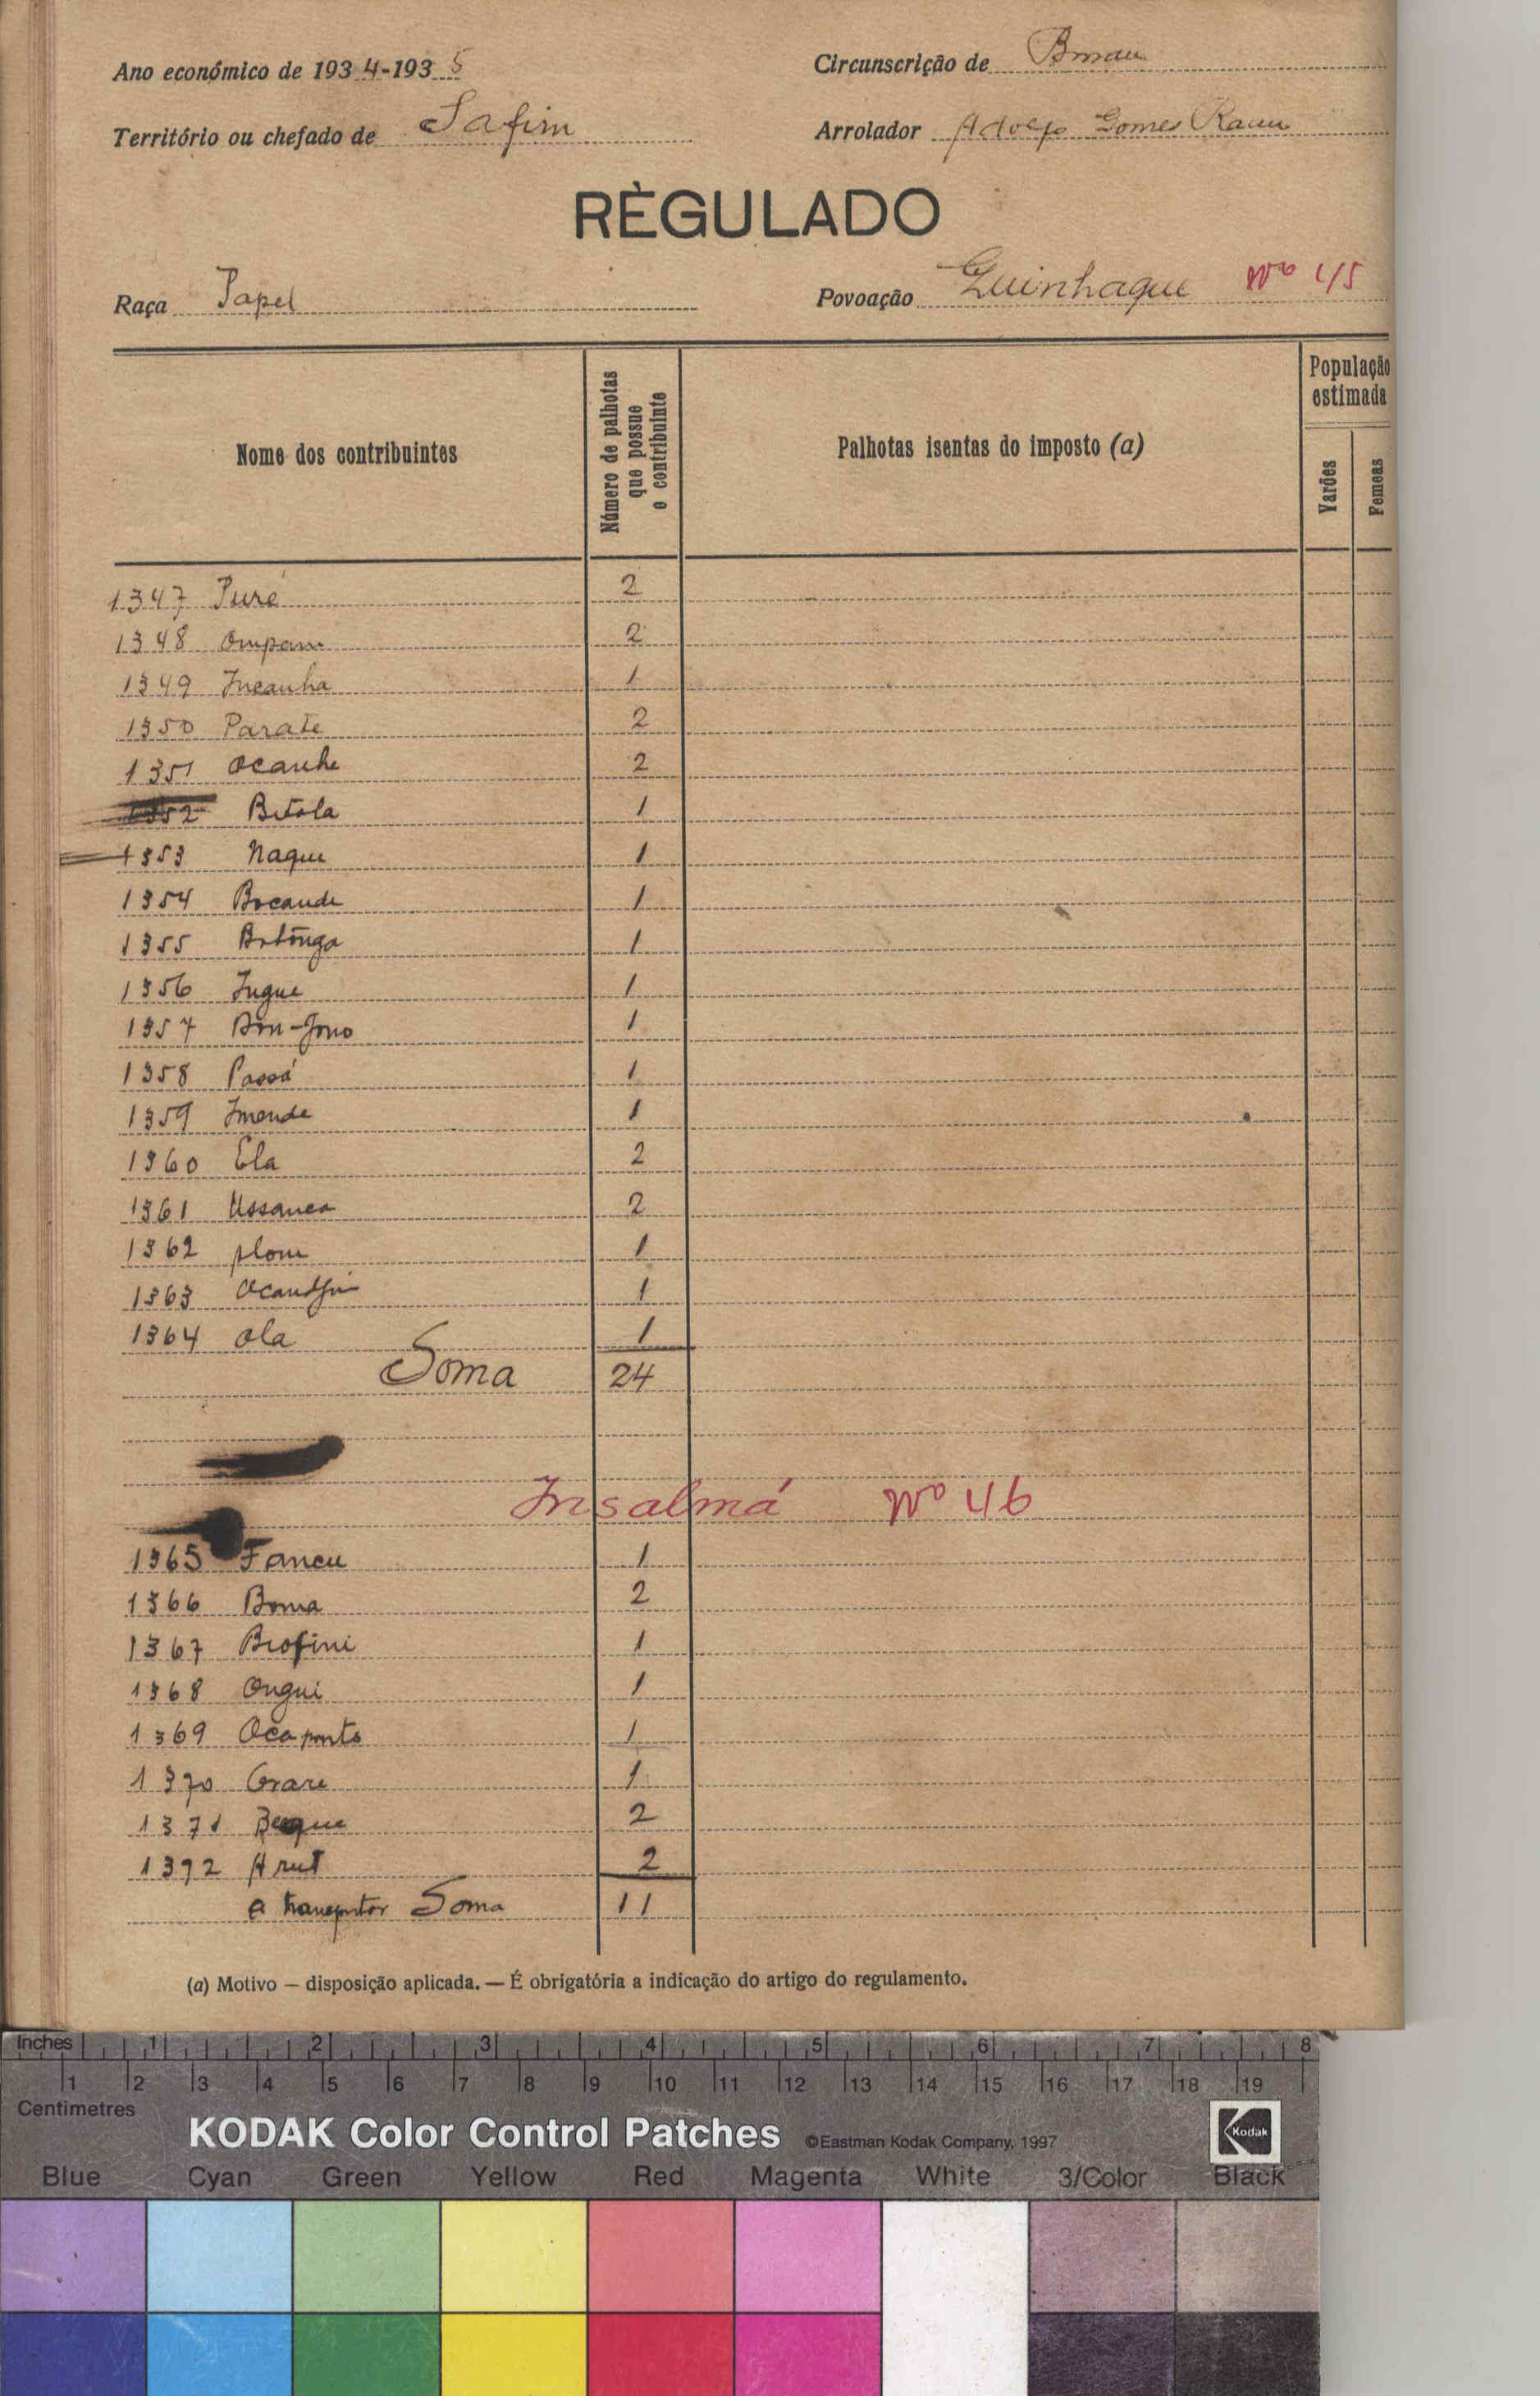 Ano económico de 1934-1935
Circunscrição de
Território ou chefado de Safim
Arrolador Gomes
RÈGULADO
Raça Papel
Povoação Quinhaque Nº 45
Nome dos contribuintes
Número de palhotas que possue o contribuinte
Palhotas isentas do imposto (a)
População estimada
Varões
Femeas
1347 Puré 2
1348 2
1349 Incanha 1
1350 Parate 2
1351 Ocanhe 2
1352 Bitola 1
1353 Naque 1
1354 Bocande 1
1355 Batonga 1
1356 Jugue 1
1357 1
1358 Passá 1
1359 Imende 1
1360 Ela 2
1361 Ussanca 2
1362 1
1363 1
1364 Ola 1
Soma 24
Insalmá Nº 46
1365 Fancu 1
1366 Boma 2
1367 Biofini 1
1368 Ongui 1
1369 Ocaponto 1
1370 1
1371 2
1372 Arut 2
a transportar Soma 11
(a) Motivo — disposição aplicada. — É obrigatória a indicação do artigo do regulamento.
Inches 1 2 3 4 5 6 7 8
1 2 3 4 5 6 7 8 9 10 11 12 13 14 15 16 17 18 19
Centimetres
KODAK Color Control Patches ©Eastman Kodak Company, 1997 Kodak
Blue Cyan Green Yellow Red Magenta White 3/Color Black